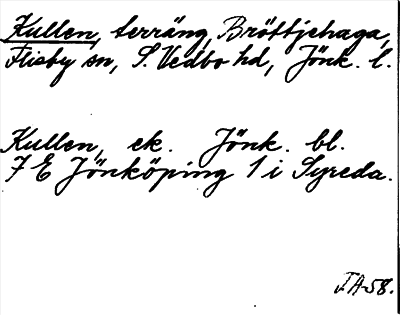 Kullen, terräng, Bröttjehaga,
Flisby sn, S. Vedbo hd, Jönk. l.
Kullen, ek. Jönk. bl.
7 E Jönköping 1 i Syreda.
I.A-58.